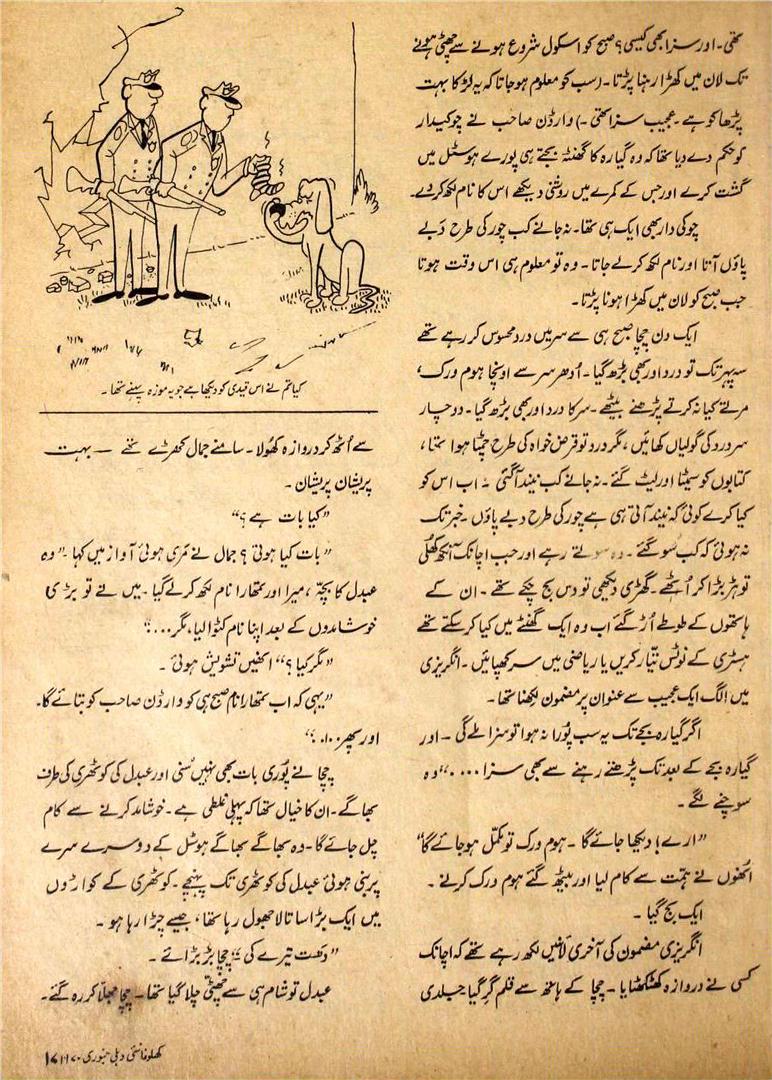 تھی۔ اور سزا بھی کیسی؟ صبح کو اسکول شروع ہونے سے چھٹی ہونے
تک لان میں کھڑا رہنا پڑتا۔ (سب کو معلوم ہو جاتا کہ یہ لڑکا بہت
پڑھاکو ہے۔ عجیب سزا تھی۔) وارڈن صاحب نے چوکیدار
کو حکم دے دیا تھا کہ وہ گیارہ کا گھنٹہ بجتے ہی پورے ہوسٹل میں
گشت کرے اور جس کے کمرے میں روشنی دیکھے اس کا نام لکھ کر دے۔
چوکی دار بھی ایک ہی تھا۔ نہ جانے کب چور کی طرح دَبے
پاؤں آتا اور نام لکھ کر لے جاتا۔ وہ تو معلوم ہی اس وقت ہوتا
جب صبح کو لان میں کھڑا ہونا پڑتا۔
ایک دن چچا صبح ہی سے سر میں درد محسوس کر رہے تھے
سہ پہر تک تو درد اور بھی بڑھ گیا۔ اُدھر سر سے اونچا ہوم ورک،
مرتے کیا نہ کرتے پڑھنے بیٹھے۔ سر کا درد اور بھی بڑھ گیا۔ دو چار
سر درد کی گولیاں کھائیں، مگر درد تو قرض خواہ کی طرح چمٹا ہوا تھا،
کتابوں کو سمیٹا اور لیٹ گئے۔ نہ جانے کب نیند آ گئی۔ اب اس کو
کیا کرے کوئی کہ نیند آتی ہی ہے چور کی طرح دبے پاؤں۔ خبر تک
نہ ہوئی کہ کب سو گئے۔ وہ سوتے رہے اور جب اچانک آنکھ کھلی
تو ہڑبڑا کر اُٹھے۔ گھڑی دیکھی تو دس بج چکے تھے۔ ان کے
ہاتھوں کے طوطے اُڑ گئے اب وہ ایک گھنٹے میں کیا کر سکتے تھے
ہسٹری کے نوٹس تیار کریں یا ریاضی میں سر کھپائیں۔ انگریزی
میں الگ ایک عجیب سے عنوان پر مضمون لکھنا تھا۔
اگر گیارہ بجے تک یہ سب پُورا نہ ہوا تو سزا ملے گی۔ اور
گیارہ بجے کے بعد تک پڑھتے رہنے سے بھی سزا ....“ وہ
سوچنے لگے۔
”ارے! دیکھا جائے گا۔ ہوم ورک تو مکمل ہو جائے گا“
اُنھوں نے ہمّت سے کام لیا اور بیٹھ گئے ہوم ورک کرنے۔
ایک بج گیا۔
انگریزی مضمون کی آخری لائنیں لکھ رہے تھے کہ اچانک
کسی نے دروازہ کھٹکھٹایا۔ چچا کے ہاتھ سے قلم گر گیا جلدی
کیا تم نے اس قیدی کو دیکھا ہے جو یہ موزہ پہنے تھا۔
سے اُٹھ کر دروازہ کھولا۔ سامنے جمال کھڑے تھے — بہت
پریشان پریشان۔
”کیا بات ہے؟“
”بات کیا ہوتی؟ جمال نے مَری ہوئی آواز میں کہا۔ ”وہ
عبدل کا بچّہ، میرا اور تمھارا نام لکھ کر لے گیا۔ میں نے تو بڑی
خوشامدوں کے بعد اپنا نام کٹوا لیا، مگر ...“
”مگر کیا؟“ انھیں تشویش ہوئی۔
”یہی کہ اب تمھارا نام صبح ہی کو وارڈن صاحب کو بتائے گا۔
اور پھر ....“
چچا نے پُوری بات بھی نہیں سُنی اور عبدل کی کوٹھری کی طرف
بھاگے۔ ان کا خیال تھا کہ پہلی غلطی ہے۔ خوشامد کرنے سے کام
چل جائے گا۔ وہ بھاگے بھاگے ہوسٹل کے دوسرے سرے
پر بنی ہوئی عبدل کی کوٹھری تک پہنچے۔ کوٹھری کے کواڑوں
میں ایک بڑا سا تالا جھول رہا تھا، جیسے چڑا رہا ہو۔
”دھت تیرے کی“ چچا بڑبڑائے۔
عبدل تو شام ہی سے چھٹی چلا گیا تھا۔ چچا جھلّا کر رہ گئے۔
کھلونا نئی دہلی جنوری